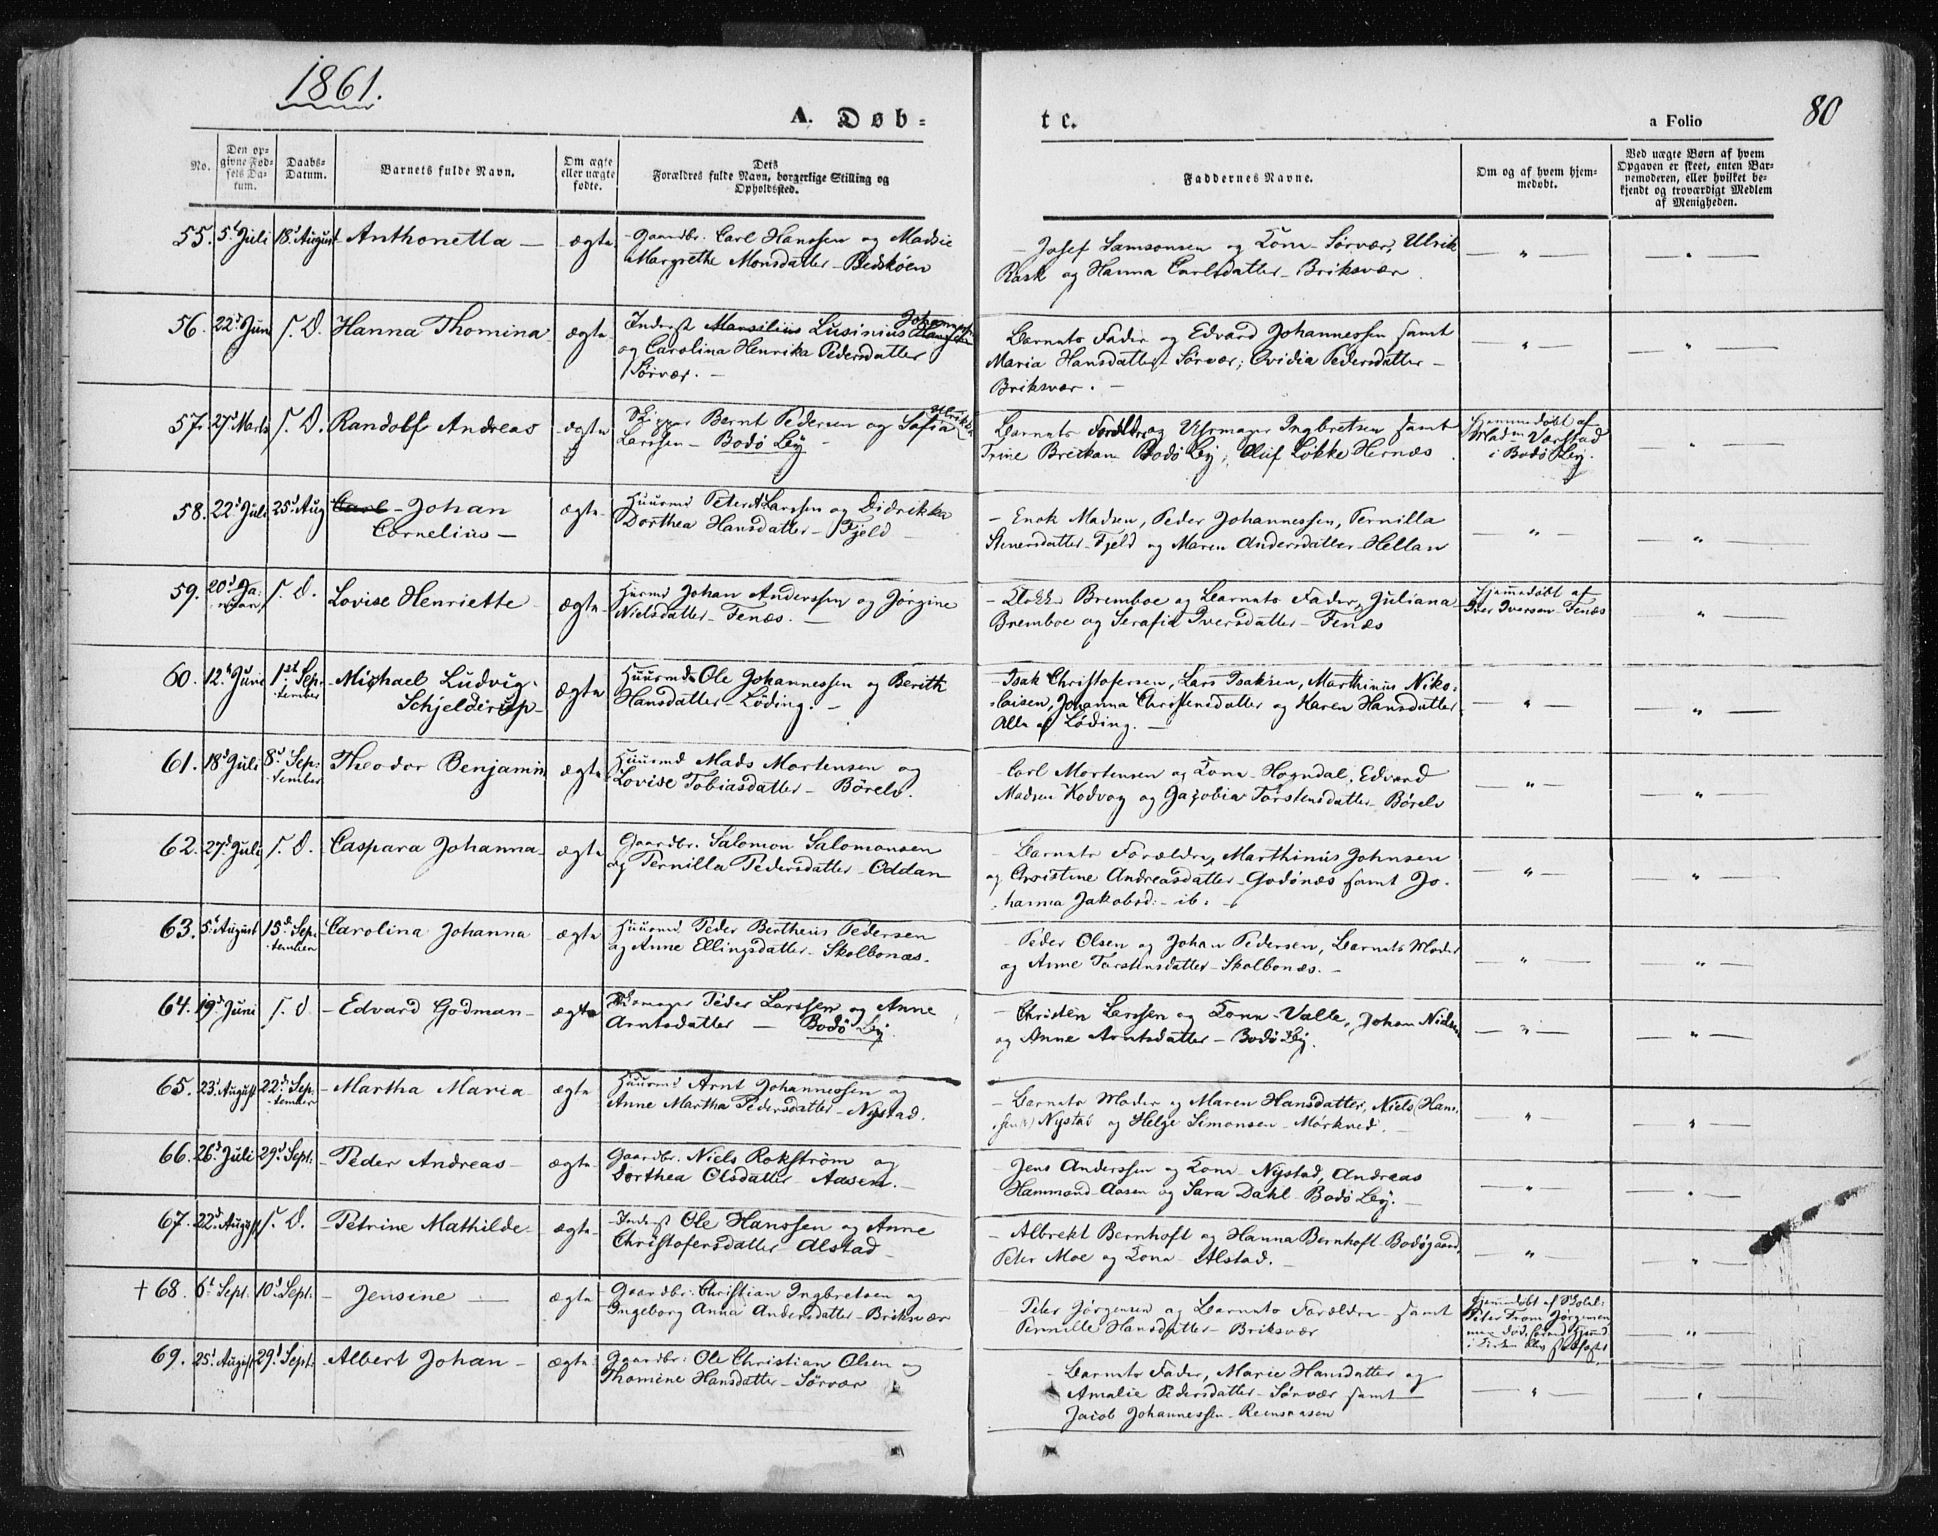 1861.
A. Døb=
te.
a Folio
80
No.
Den op-
givne Fød-
sels Da-
tum.
Daabs-
Datum.
Barnets fulde Navn.
Om ægte
eller uægte
fødte.
Dets
Forældres fulde Navn, borgerlige Stilling og
Opholdssted.
Faddernes Navne.
Om og af hvem hjem-
medøbt.
Ved uægte Børn af hvem
Opgaven er skeet, enten Bar-
nemoderen, eller hvilket be-
kjendt og troværdigt Medlem
af Menigheden.
55. 5t Juli 18d August Anthonetta — ægte Gaardbr. Carl Hanssen og Madsie
Margrethe Monsdatter - Bedskøen
- Josef Samsonsen og Kone - Sørvær, Ulrik
Rask og Hanna Carlsdatter - Briksvær.
56. 22d Juni s. D. Hanna Thomina ægte Inderst Marsilius Lusinius Johannessen
og Carolina Henrika Pedersdatter
Sørvær. -
Barnets Fader og Edvard Johannessen samt
Maria Hansdatter Sørvær; Ovidia Pedersdatter -
Briksvær. -
57. 27d Marts s. D. Randolf Andreas ægte Skipper Bernt Pedersen og Sofia Ulrikke
Larssen - Bodø By -
Barnets Forældre og Uhrmager Ingbretsen samt
Trine Breikam Bodø By; Oluf Løkke Hernæs
Hjemmedøbt af
Madm Værstad
i Bodø By.
58. 22d Juli 25d Aug Carl - Johan
Cornelius -
ægte Huusmd Peter A. Larssen og Didrikka
Dorthea Hansdatter - Fjeld -
- Enok Madsen, Peder Johannessen, Pernilla
Stenersdatter - Fjeld og Maren Andersdatter - Hellan
59. 20d Ja-
nuar s. D. Lovise Henriette ægte Huusmd Johan Anderssen og Jørgine
Nielsdatter - Fenæs. -
- Klokker Bremboe og Barnets Fader, Juliana
Bremboe og Serafia Iversdatter - Fenæs
Hjemmedøbt af
Iver Iversen - Fenæs
60. 12t Juni 1st Sep-
tember Michael Ludvig
Schjelderup -
ægte Huusmd Ole Johannessen og Berith
Hansdatter - Løding. -
- Isak Christofersen, Lars Isaksen, Marthinus Niko-
laisen, Johanna Christensdatter og Karen Hansdatter
Alle af Løding. -
61. 18d Juli 8d Sep-
tember Theodor Benjamin ægte Huusmd Mads Mortensen og
Lovise Tobiasdatter - Børelv.
Carl Mortensen og Kone - Hogndal, Edvard
Madsen Kodvag og Jacobia Torstensdatter - Børelv
62. 27d Juli s. D. Caspara Johanna ægte Gaardbr. Salomon Salomonsen
og Pernilla Pedersdatter - Oddan
- Barnets Forældre, Marthinus Johnsen
og Christine Andreasdatter - Godønæs samt Jo-
hanna Jakobsd: - ib: -
63. 5t August 15d Sep-
tember Carolina Johanna ægte Huusmd Peder Bertheus Pedersen
og Anne Ellingsdatter - Skolbonæs.
- Peder Olsen og Johan Pedersen, Barnets Moder
og Anne Torstensdatter - Skolbonæs. -
64. 19d Juni s. D. - Edvard Godman - ægte Skomager Peder Larssen og Anne
Arntsdatter — Bodø By.
- Christen Larssen og Kone - Valle, Johan Nielsen
og Anne Arntsdatter - Bodø By.
65. 23d August 22d Sep-
tember - Martha Maria - ægte Huusmd Arnt Johannessen og
Anne Martha Pedersdatter - Nystad.
- Barnets Moder og Maren Hansdatter, Niels Hans-
sen Nystad og Helge Simonsen - Mørkved.
66. 26d Juli 29d Sept: - Peder Andreas - ægte Gaardbr. Niels Rokstrøm og
Dorthea Olsdatter - Aasen. -
- Jens Anderssen og Kone - Nystad, Andreas
Hammond Aasen og Sara Dahl - Bodø By. -
67. 22d August s. D. - Petrine Mathilde - ægte Inderst Ole Hanssen og Anne
Christofersdatter - Alstad -
- Albrekt Bernhoft og Hanna Bernhoft Bodøgaard,
Peter Moe og Kone - Alstad. -
+ 68. 6t Sept. 10d Sept. - Jensine — ægte Gaardbr. Christian Ingbretsen og
Ingeborg Anna Andersdatter - Briksvær
- Peter Jørgensen og Barnets Forældre - samt
Pernille Hansdatter - Briksvær
Hjemmedøbt af Skolel:
Peter From Jørgensen
men død, forend
i Kirken blev
69. 25d August 29d Sept: Albert Johan - ægte Gaardbr: Ole Christian Olsen og
Thomine Hansdatter - Sørvær
- Barnets Fader, Marie Hansdatter og
Amalie Pedersdatter - Sørvær samt
Jacob Johannessen - Reensaasen